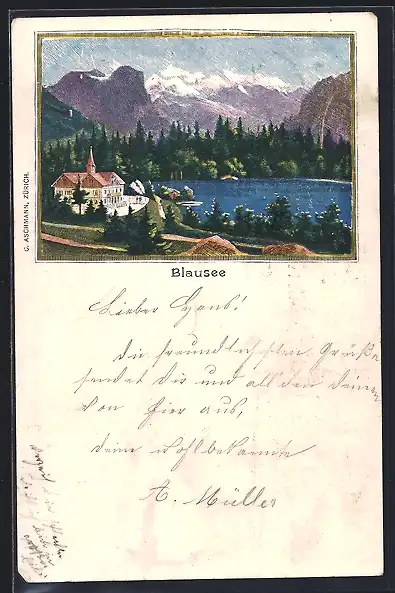 C. ASCHMANN, ZÜRICH.
Blausee
Lieber Hans!
Die freundlichsten Grüße
sendet Dir und all den Deinen
von hier aus,
deine wohlbekannte
A. Müller